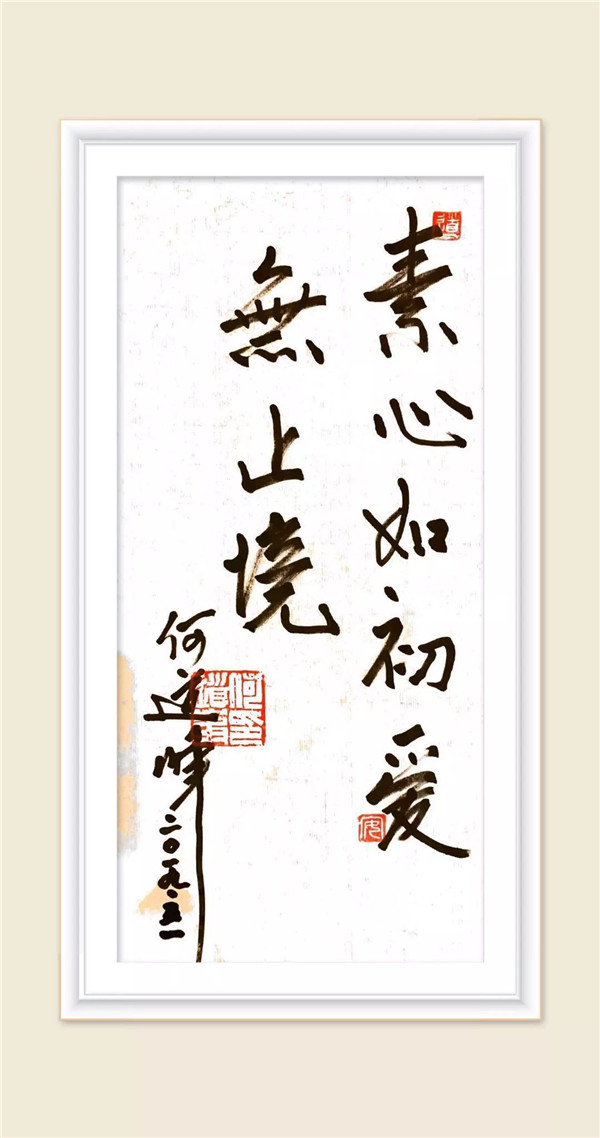 素心如初爱
無止境
何道峰
二〇一九·五·一